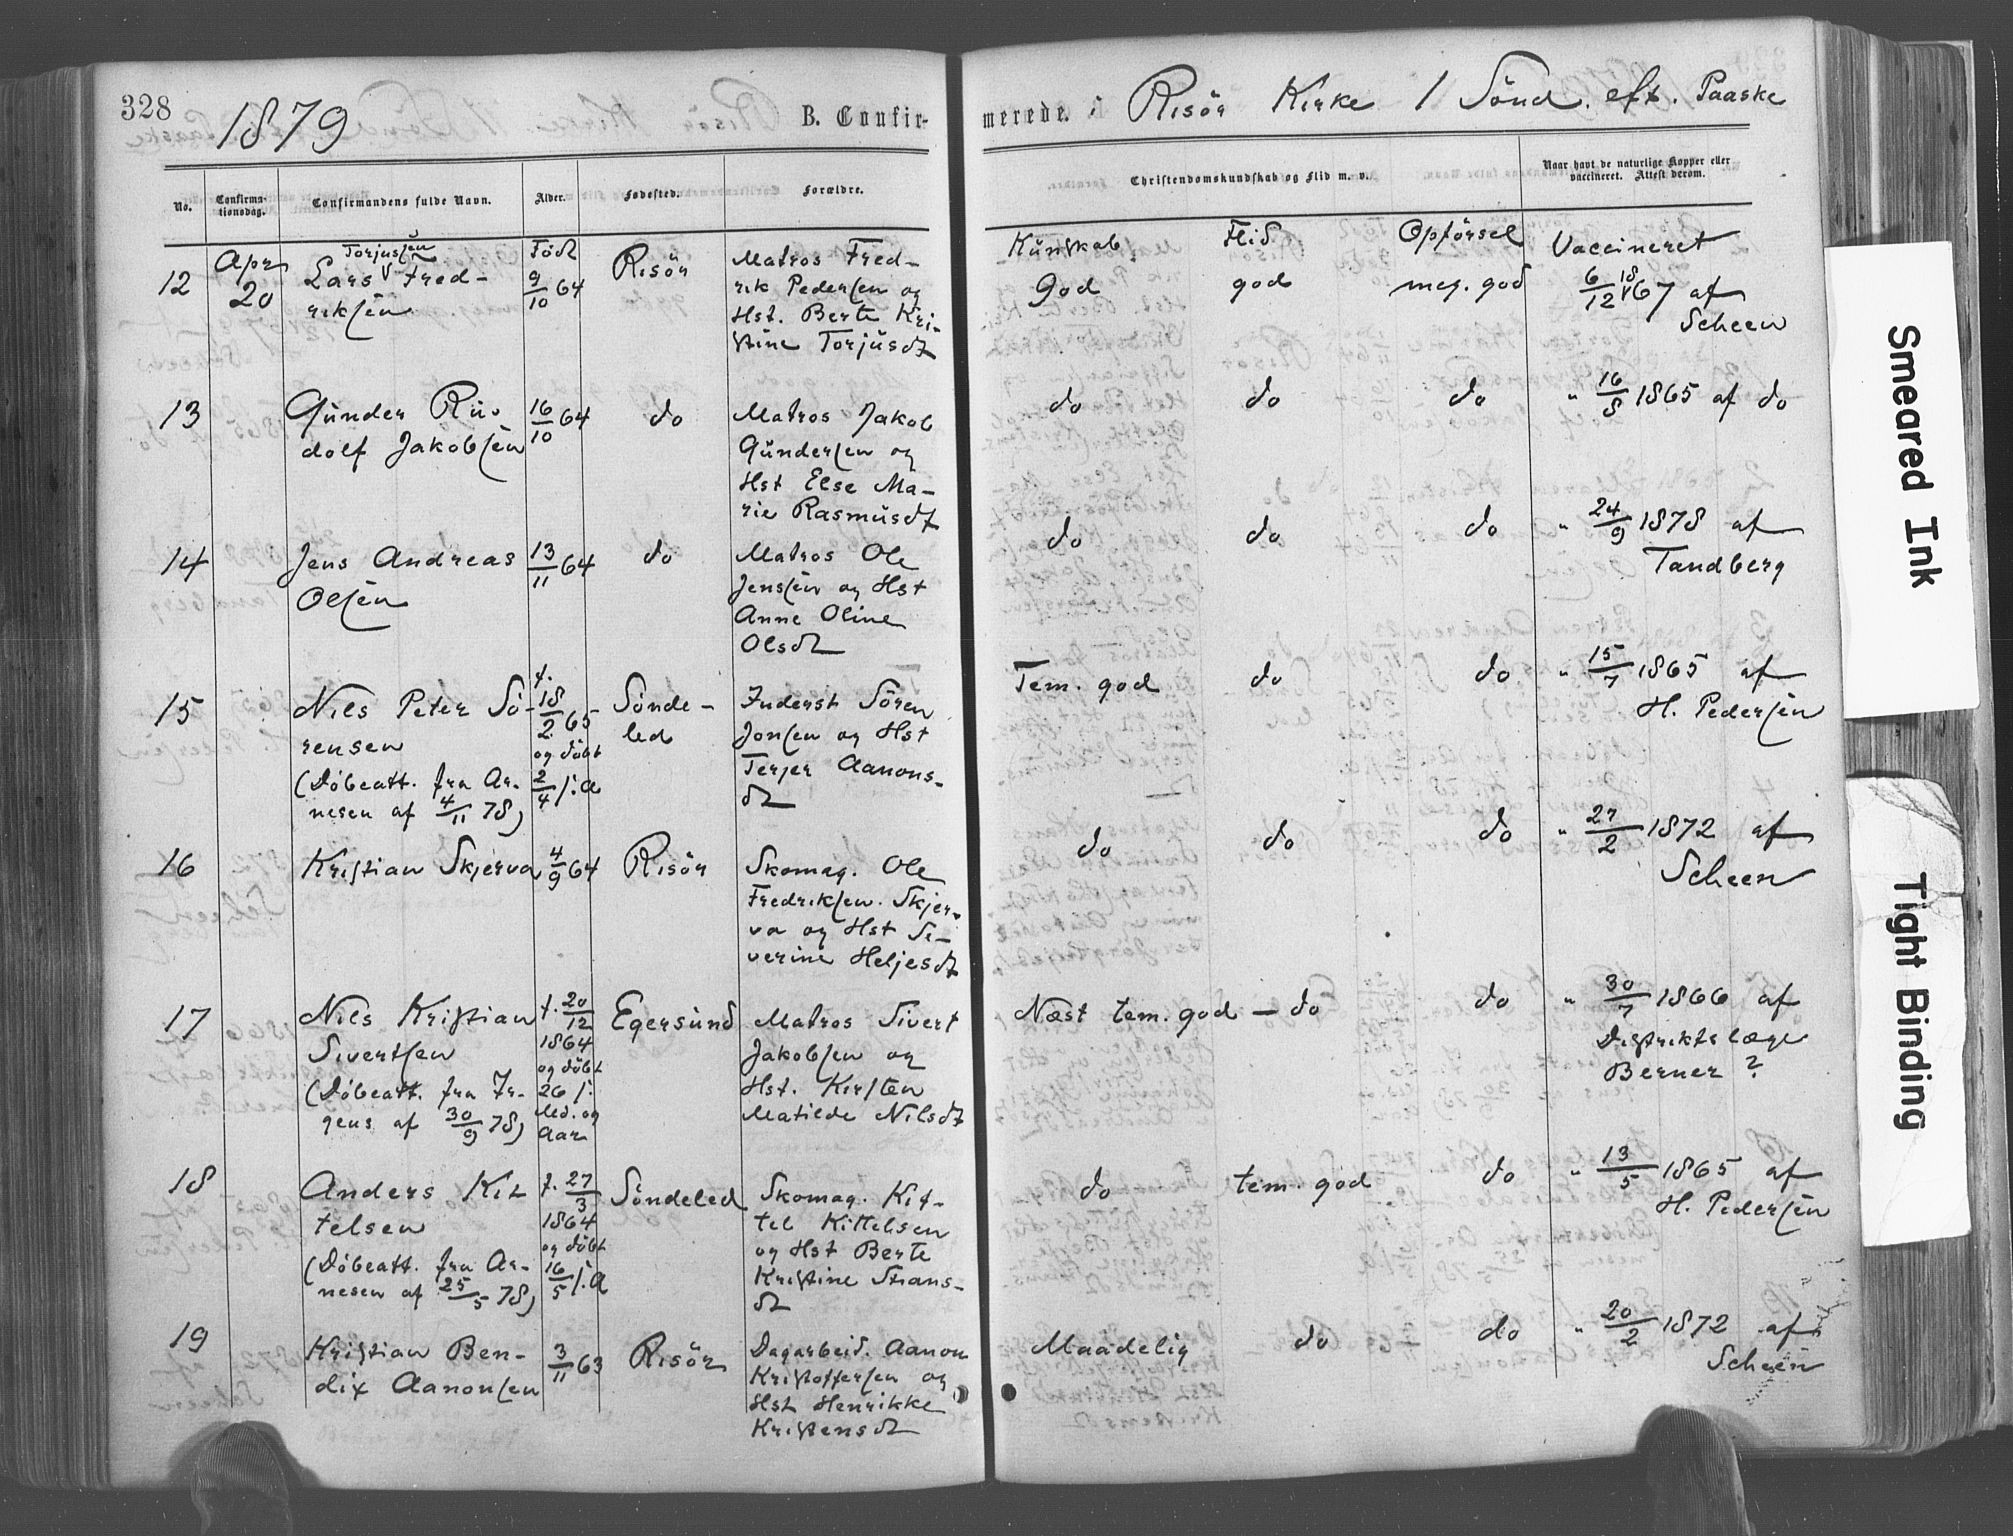 328
1879
B. Confir-
merede. i Risör Kirke 1 Sönd. eft. Paaske
No.
Confirma-
tionsdag.
Confirmandens fulde Navn.
Alder.
Fødested.
Forældre.
Christendomskundskab og Flid m. v.
Naar havt de naturlige Kopper eller
vaccineret. Attest derom.
Kunskab
Flid
Opförsel
Vaccineret
12
Apr
20
Torjusen
Lars Fred-
riksen
Föd
9/10 64
Risör
Matros Fred-
rik Pedersen og
Hst. Berte Kri-
stine Torjusdt
God
god
meg. god
6/12 1867 af
Scheen
13
Gunder Ru-
dolf Jakobsen
16/10 64
do
Matros Jakob
Gundersen og
Hst Else Ma-
rie Rasmusdt
do
do
do
" 16/8 1865 af do
14
Jens Andreas
Olsen
13/11 64
do
Matros Ole
Jensen og Hst
Anne Oline
Olsdt
do
do
do
" 24/9 1878 af
Tandberg
15
Nils Peter Sö-
rensen
(Döbeatt. fra Ar-
nesen af 4/11 78)
f.
18/2 65
og döbt
2/4 s. A
Sönde-
led
Inderst Sören
Jonsen og Hst
Terjer Aanons-
dt
Tem. god
do
do
" 15/7 1865 af
H. Pedersen
16
Kristian Skjerva
4/9 64
Risör
Skomag. Ole
Fredriksen Skjer-
va og Hst Se-
verine Heljesdt
do
do
do
" 27/2 1872 af
Scheen
17
Nils Kristian
Sivertsen
(Döbeatt. fra Jr-
gens af 30/9 78)
f. 20/12
1864
og döbt
26 s.
Md. og
Aar
Egersund
Matros Sivert
Jakobsen og
Hst. Kirsten
Matilde Nilsdt
Næst tem. god
— do
do
" 30/7 1866 af
Distriktslæge
Berner ?
18
Anders Kit-
telsen
(Döbeatt. fra Ar-
nesen af 25/5 78)
f. 27/3
1864
og döbt
16/5 s. A
Söndeled
Skomag. Kit-
tel Kittelsen
og Hst Berte
Kristine Strans-
dt
do
tem. god
do
" 13/5 1865 af
H. Pedersen
19
Kristian Ben-
dix Aanonsen
3/11 63
Risör
Dagarbeid. Aanon
Kristoffersen og
Hst Henrikke
Kristensdt
Maadelig
do
do
" 20/2 1872 af
Scheen
Smeared Ink
Tight Binding